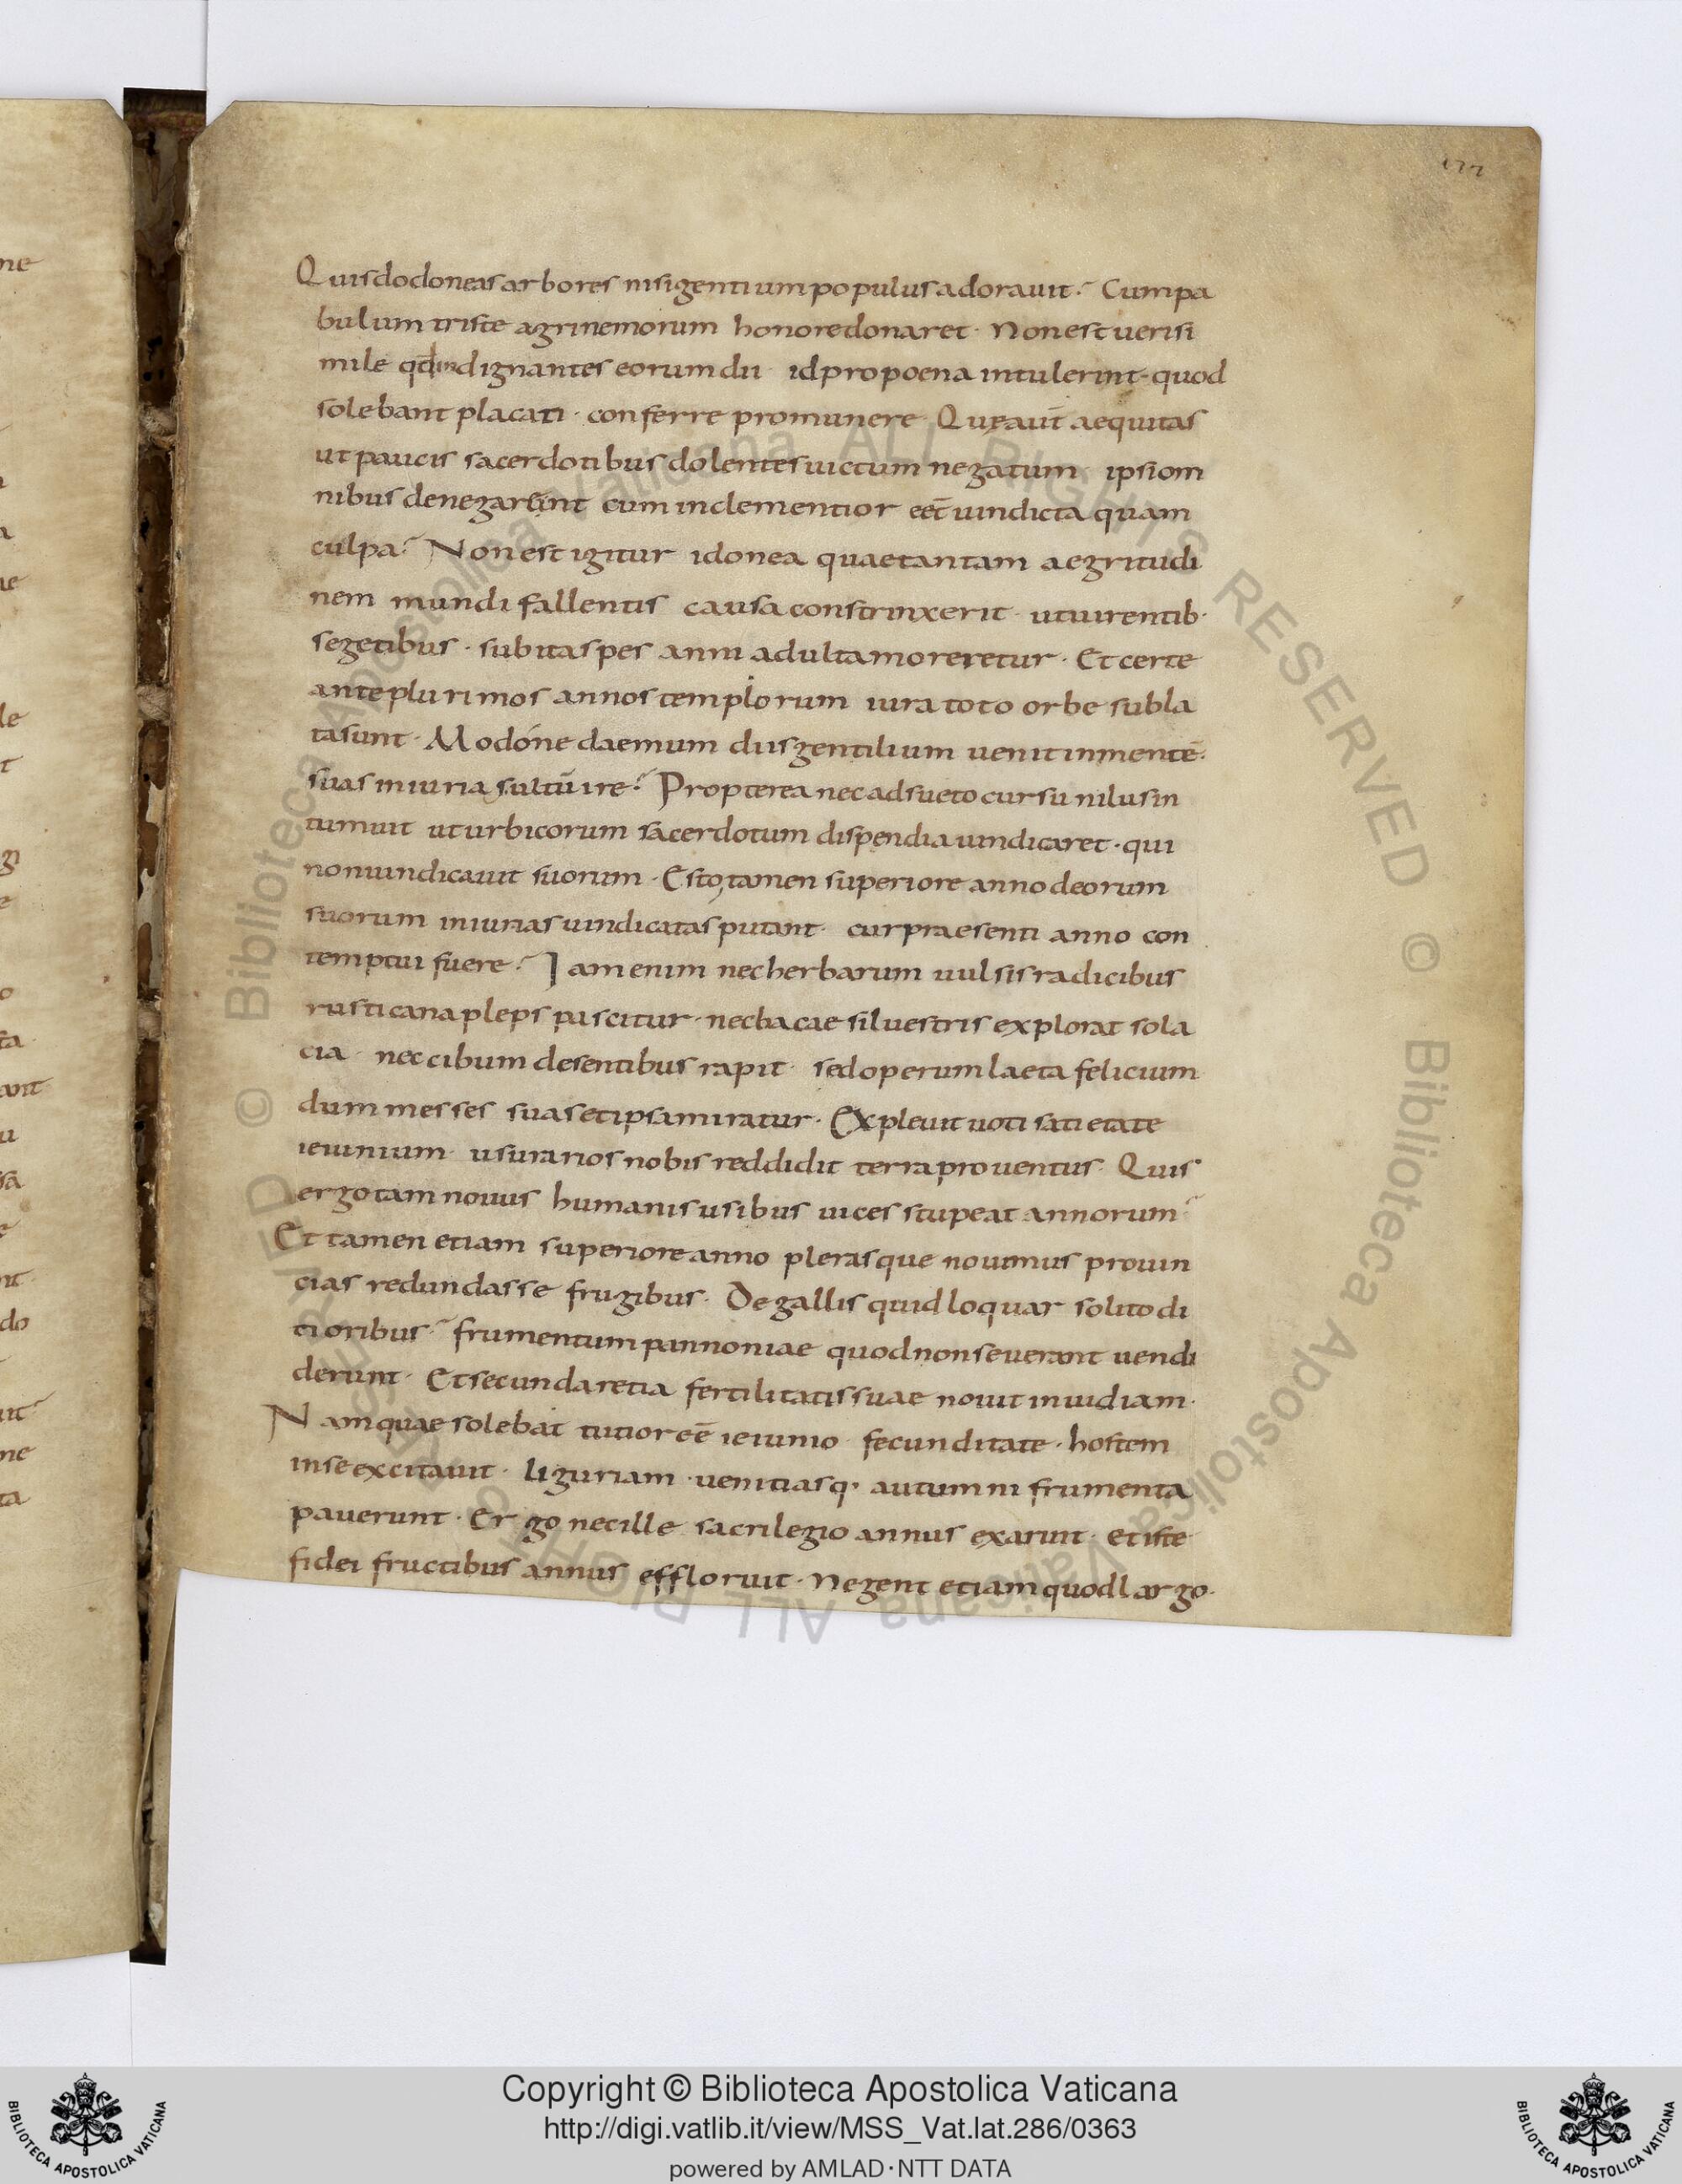 177
Quis dodoneas arbores nisi gentium populus adorauit? Cum pa
bulum triste agri nemorum honore donaret· Non est uerisi
mile qđ indignantes eorum dii· id pro poena intulerint· quod
solebant placati· conferre pro munere· Quę aut̄ aequitas
ut paucis sacerdotibus dolentes uictum negatum· ipsi om
nibus denegarent cum inclementior eēt uindicta quam
culpa? Non est igitur idonea quae tantam aegritudi
nem mundi fallentis causa constrinxerit· ut uirentib·
segetibus· subita spes anni adulta moreretur· Et certe
ante plurimos annos templorum iura toto orbe subla
ta sunt· Modóne daemum diis gentilium uenit in mentē·
suas iniurias ultū ire? Propterea nec adsueto cursu nilus in
tumuit ut urbicorum sacerdotum dispendia uindicaret· qui
non uindicauit suorum· Esto, tamen superiore anno deorum
suorum iniurias uindicatas putant· cur praesenti anno con
temptui fuere? Iam enim nec herbarum uulsis radicibus
rusticana pleps pascitur· nec bacae siluestris explorat sola
cia· nec cibum de sentibus rapit· sed operum laeta felicium
dum messes suas et ipsa miratur· Expleuit uoti satietate
ieiunium· usurarios nobis reddidit terra prouentus· Quis
ergo tam nouus humanis usibus uices stupeat annorum?
Et tamen etiam superiore anno plerasque nouimus prouin
cias redundasse frugibus· De gallis quid loquar solito di
tioribus? frumentum pannoniae quod non seuerant uendi
derunt· Et secunda retia fertilitatis suae nouit inuidiam·
Nam quae solebat tutior eē ieiunio· fecunditate· hostem
in se excitauit· liguriam· uenitiasq· autumni frumenta
pauerunt· Ergo nec ille sacrilegio annus exaruit· et iste
fidei fructibus annus effloruit· Negent etiam quod largo·
Copyright © Biblioteca Apostolica Vaticana
http://digi.vatlib.it/view/MSS_Vat.lat.286/0363
powered by AMLAD·NTT DATA
BIBLIOTECA APOSTOLICA VATICANA
BIBLIOTECA APOSTOLICA VATICANA